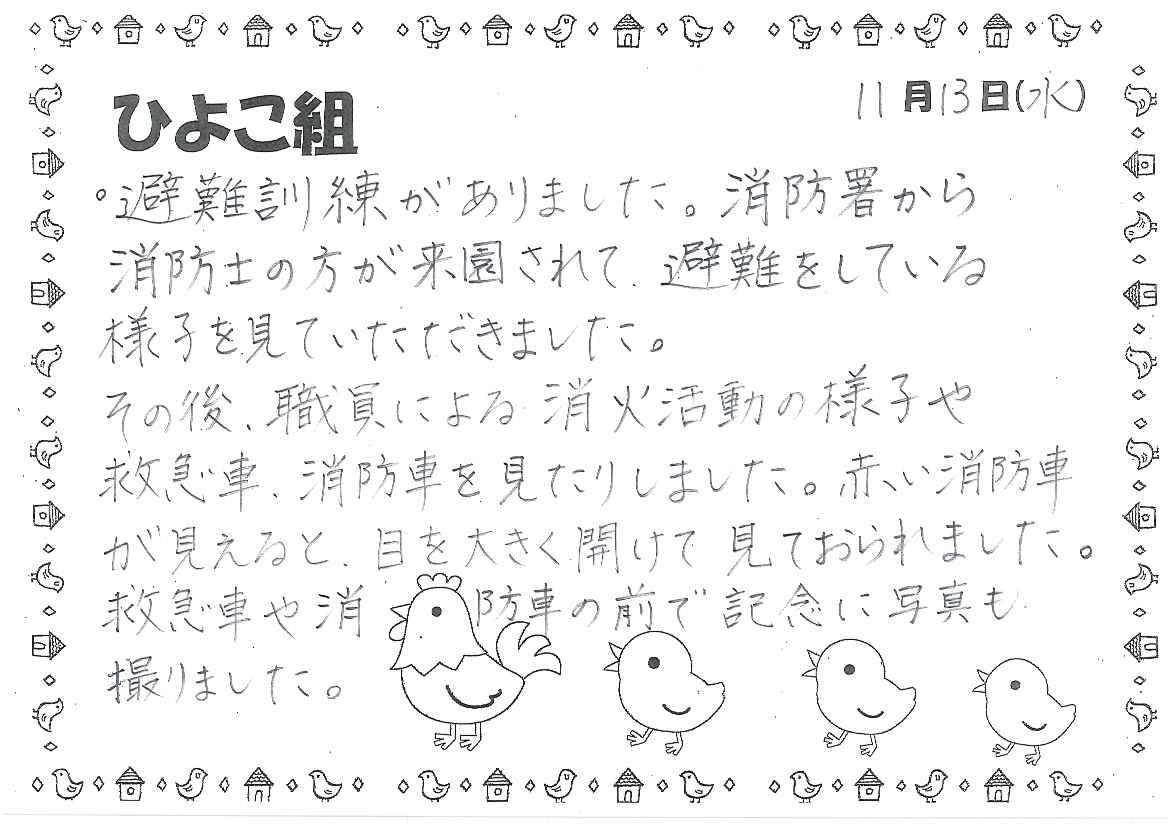 ひよこ組
11月13日(水)
。避難訓練がありました。消防署から
消防士の方が来園されて、避難をしている
様子を見ていただきました。
その後、職員による消火活動の様子や
救急車、消防車を見たりしました。赤い消防車
が見えると、目を大きく開けて見ておられました。
救急車や消防車の前で記念に写真も
撮りました。